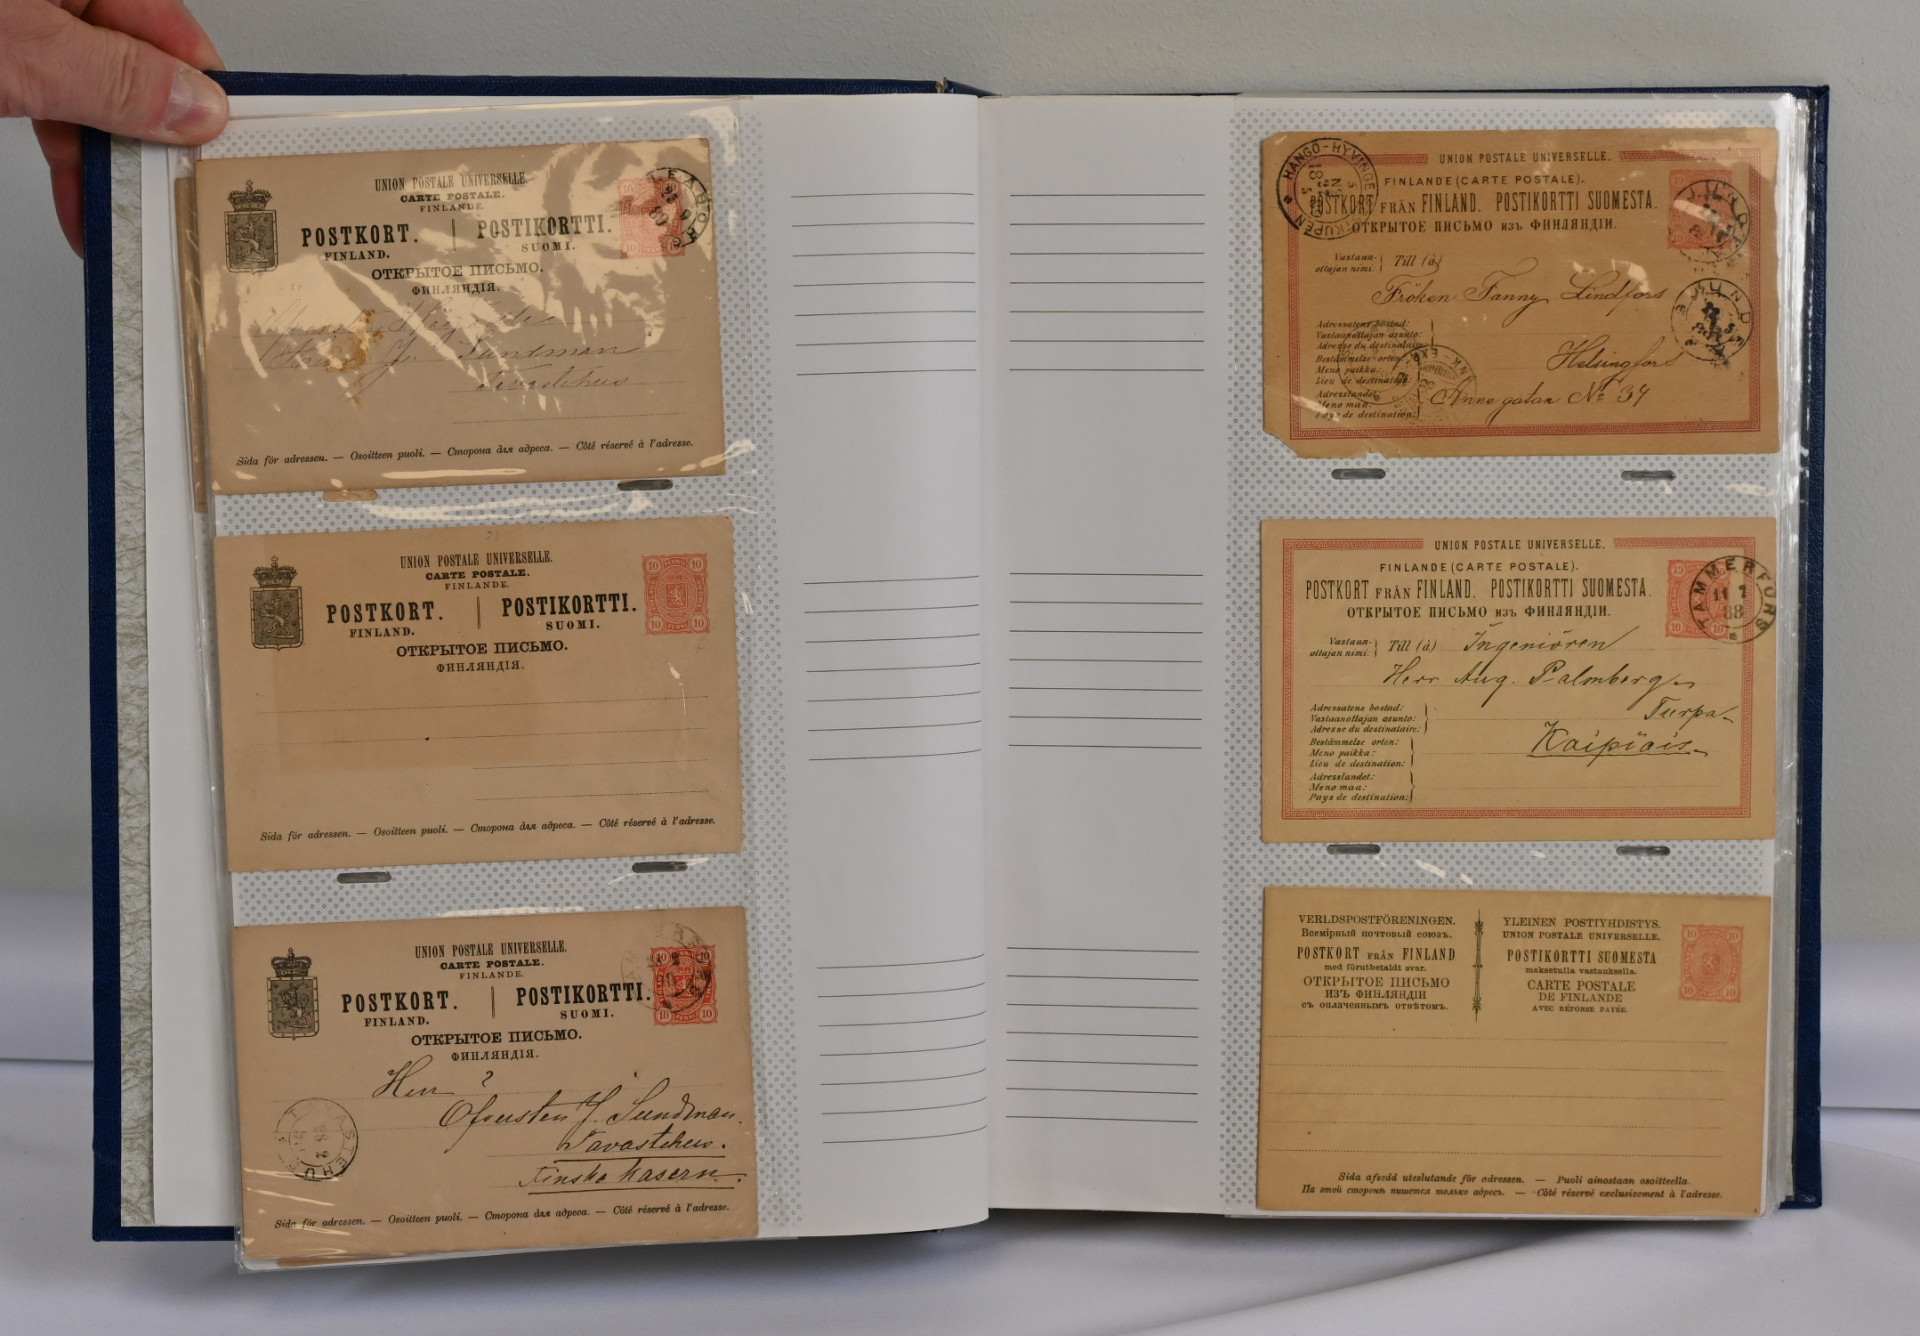 UNION POSTALE UNIVERSELLE.
CARTE POSTALE.
FINLANDE.
POSTKORT. | POSTIKORTTI.
FINLAND. SUOMI.
ОТКРЫТОЕ ПИСЬМО.
ФИНЛЯНДІЯ.
10 10
10 10
J. Sundman
Tavastehus
Sida för adressen. — Osoitteen puoli. — Сторона для адреса. — Côté réservé à l'adresse.
UNION POSTALE UNIVERSELLE.
CARTE POSTALE.
FINLANDE.
POSTKORT. | POSTIKORTTI.
FINLAND. SUOMI.
ОТКРЫТОЕ ПИСЬМО.
ФИНЛЯНДІЯ.
10 PENNI 10
10 PENNI 10
Sida för adressen. — Osoitteen puoli. — Сторона для адреса. — Côté réservé à l'adresse.
UNION POSTALE UNIVERSELLE.
CARTE POSTALE.
FINLANDE.
POSTKORT. | POSTIKORTTI.
FINLAND. SUOMI.
ОТКРЫТОЕ ПИСЬМО.
ФИНЛЯНДІЯ.
10 10
10 PENNI 10
Herr
Öfversten J. Sundman.
Tavastehus.
Finska Kasern.
TAVASTEHUS
Sida för adressen. — Osoitteen puoli. — Сторона для адреса. — Côté réservé à l'adresse.
HANGÖ-HYVINGE
KUPEN
UNION POSTALE UNIVERSELLE.
FINLANDE (CARTE POSTALE).
POSTKORT FRÅN FINLAND. POSTIKORTTI SUOMESTA.
ОТКРЫТОЕ ПИСЬМО изъ ФИНЛЯНДІИ.
Vastaan-
ottajan nimi: } Till (à)
Fröken Fanny Lindfors
Adressatens bostad:
Vastaanottajan asunto:
Adresse du destinataire:
Bestämmelse orten:
Meno paikka:
Lieu de destination:
Adresslandet:
Meno maa:
Pays de destination:
Helsingfors
Anne gatan No 34
UNION POSTALE UNIVERSELLE.
FINLANDE (CARTE POSTALE).
POSTKORT FRÅN FINLAND. POSTIKORTTI SUOMESTA.
ОТКРЫТОЕ ПИСЬМО изъ ФИНЛЯНДІИ.
TAMMERFORS
11 2
88
Vastaan-
ottajan nimi: } Till (à) Ingeniören
Herr Aug. Palmberg
Turpa
Kaipiais
Adressatens bostad:
Vastaanottajan asunto:
Adresse du destinataire:
Bestämmelse orten:
Meno paikka:
Lieu de destination:
Adresslandet:
Meno maa:
Pays de destination:
VERLDSPOSTFÖRENINGEN.
Всемірный почтовый союзъ.
POSTKORT FRÅN FINLAND
med förutbetaldt svar.
ОТКРЫТОЕ ПИСЬМО
ИЗЪ ФИНЛЯНДІИ
съ оплаченнымъ отвѣтомъ.
YLEINEN POSTIYHDISTYS.
UNION POSTALE UNIVERSELLE.
POSTIKORTTI SUOMESTA
maksetulla vastauksella.
CARTE POSTALE
DE FINLANDE
AVEC RÉPONSE PAYÉE.
10 10
10 10
Sida afsedd uteslutande för adressen. — Puoli ainostaan osoitteella.
На этой сторонѣ пишется только адресъ. — Côté réservé exclusivement à l'adresse.